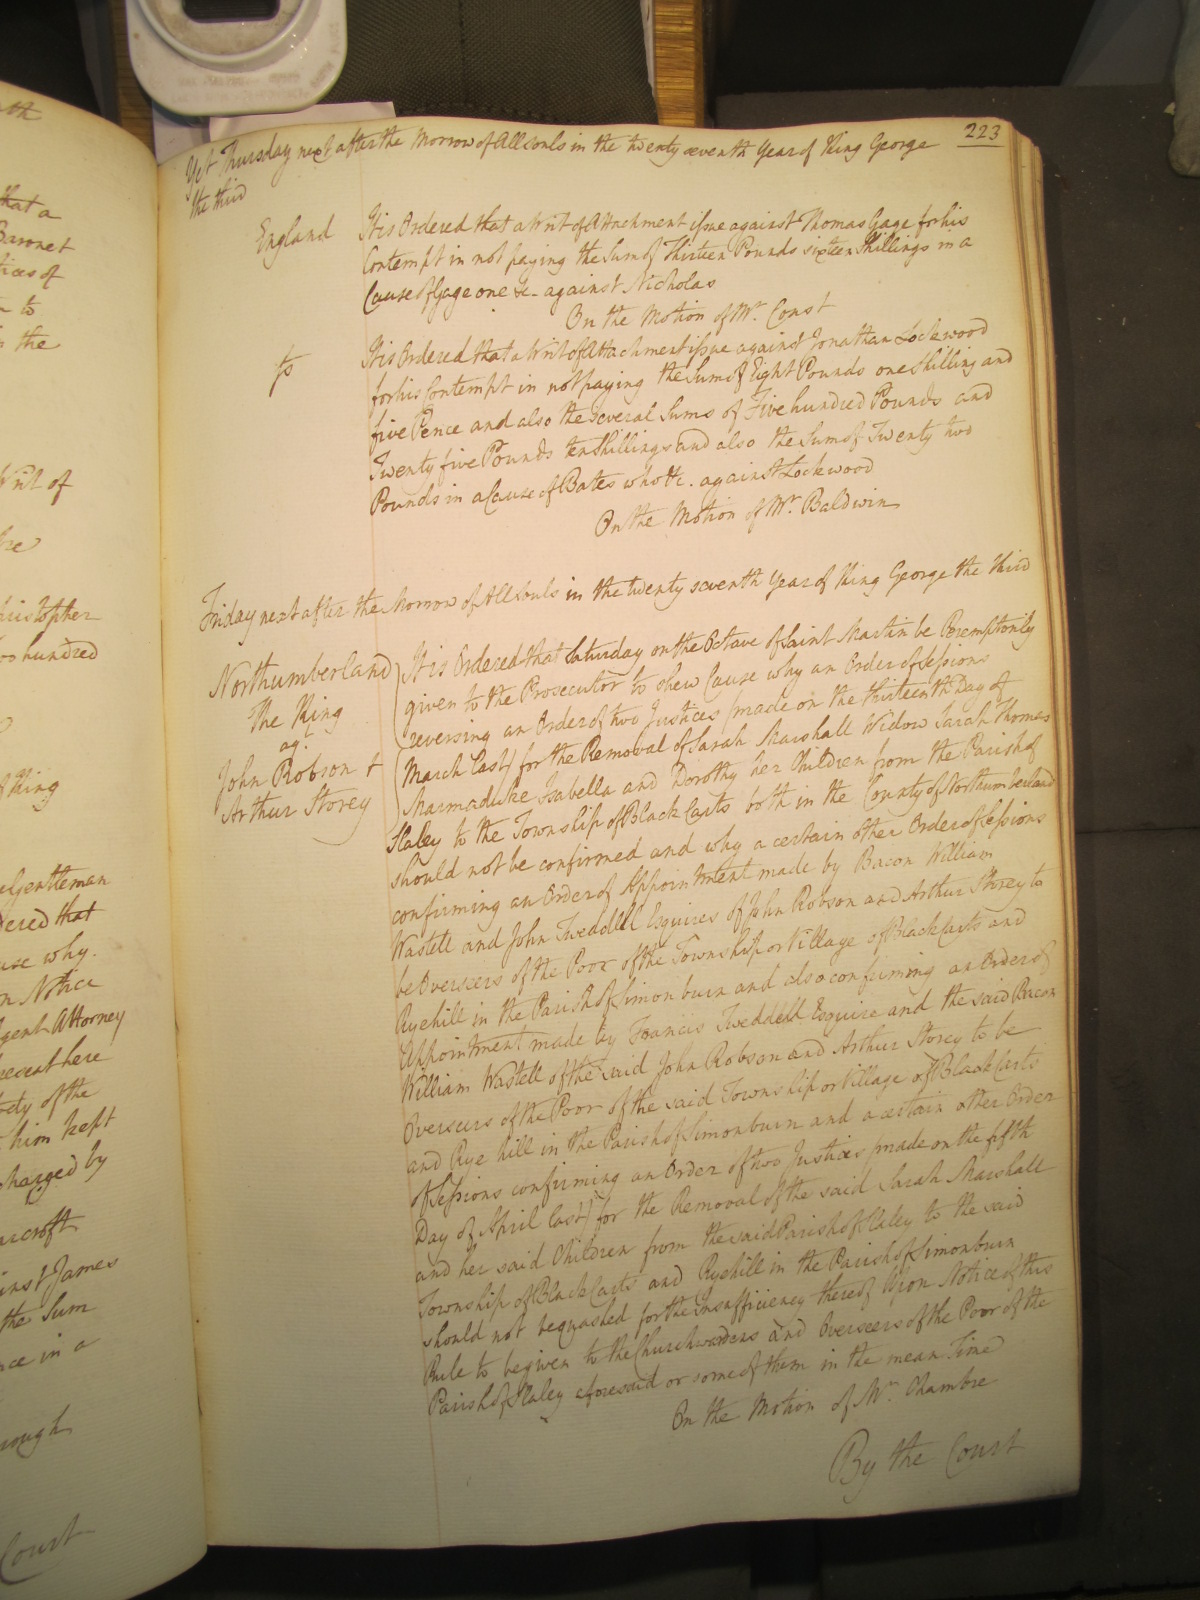 223
Yet Thursday next after the Morrow of All souls in the twenty seventh Year of King George
the third
England
It is Ordered that a Writ of Attachment issue against Thomas Gage for his
Contempt in not paying the Sum of Thirteen Pounds sixteen Shillings in a
Cause of Gage one &c. against Nicholas
On the Motion of Mr. Const
It is Ordered that a Writ of Attachment issue against Jonathan Lockwood
for his Contempt in not paying the Sum of Eight Pounds one Shilling and
five Pence and also the several Sums of Five hundred Pounds and
Twenty five Pounds ten Shillings and also the Sum of Twenty two
Pounds in a Cause of Bates who &c. against Lockwood
On the Motion of Mr. Baldwin
Friday next after the Morrow of All souls in the twenty seventh Year of King George the third
Northumberland
The King
ag.
John Robson &
Arthur Storey
It is Ordered that Saturday on the Octave of Saint Martin be Peremptorily
given to the Prosecutor to shew Cause why an Order of Sessions
reversing an Order of two Justices (made on the thirteenth Day of
March last) for the Removal of Sarah Marshall Widow Sarah Thomas
Marmaduke Isabella and Dorothy her Children from the Parish of
Slaley to the Township of Black Carts both in the County of Northumberland
should not be confirmed and why a certain other Order of Sessions
confirming an Order of Appointment made by Bacon William
Wastell and John Tweddell Esquires of John Robson and Arthur Storey to
be Overseers of the Poor of the Township or Village of Black Carts and
Ryehill in the Parish of Simonburn and also confirming an Order of
Appointment made by Francis Tweddell Esquire and the said Bacon
William Wastell of the said John Robson and Arthur Storey to be
Overseers of the Poor of the said Township or Village of Black Carts
and Rye hill in the Parish of Simonburn and a certain other Order
of Sessions confirming an Order of two Justices (made on the fifth
Day of April last) for the Removal of the said Sarah Marshall
and her said Children from the said Parish of Slaley to the said
Township of Black Carts and Ryehill in the Parish of Simonburn
should not be quashed for the Insufficiency thereof Upon Notice of this
Rule to be given to the Churchwardens and Overseers of the Poor of the
Parish of Slaley aforesaid or some of them in the mean Time
On the Motion of Mr. Chambre
By the Court
that a
Baronet
tices of
to
the
Writ of
hristopher
hundred
of King
Gentleman
ered that
use why
n Notice
gent Attorney
resent here
ety of the
him kept
charged by
croft
inst James
the Sum
nce in a
rough
Court